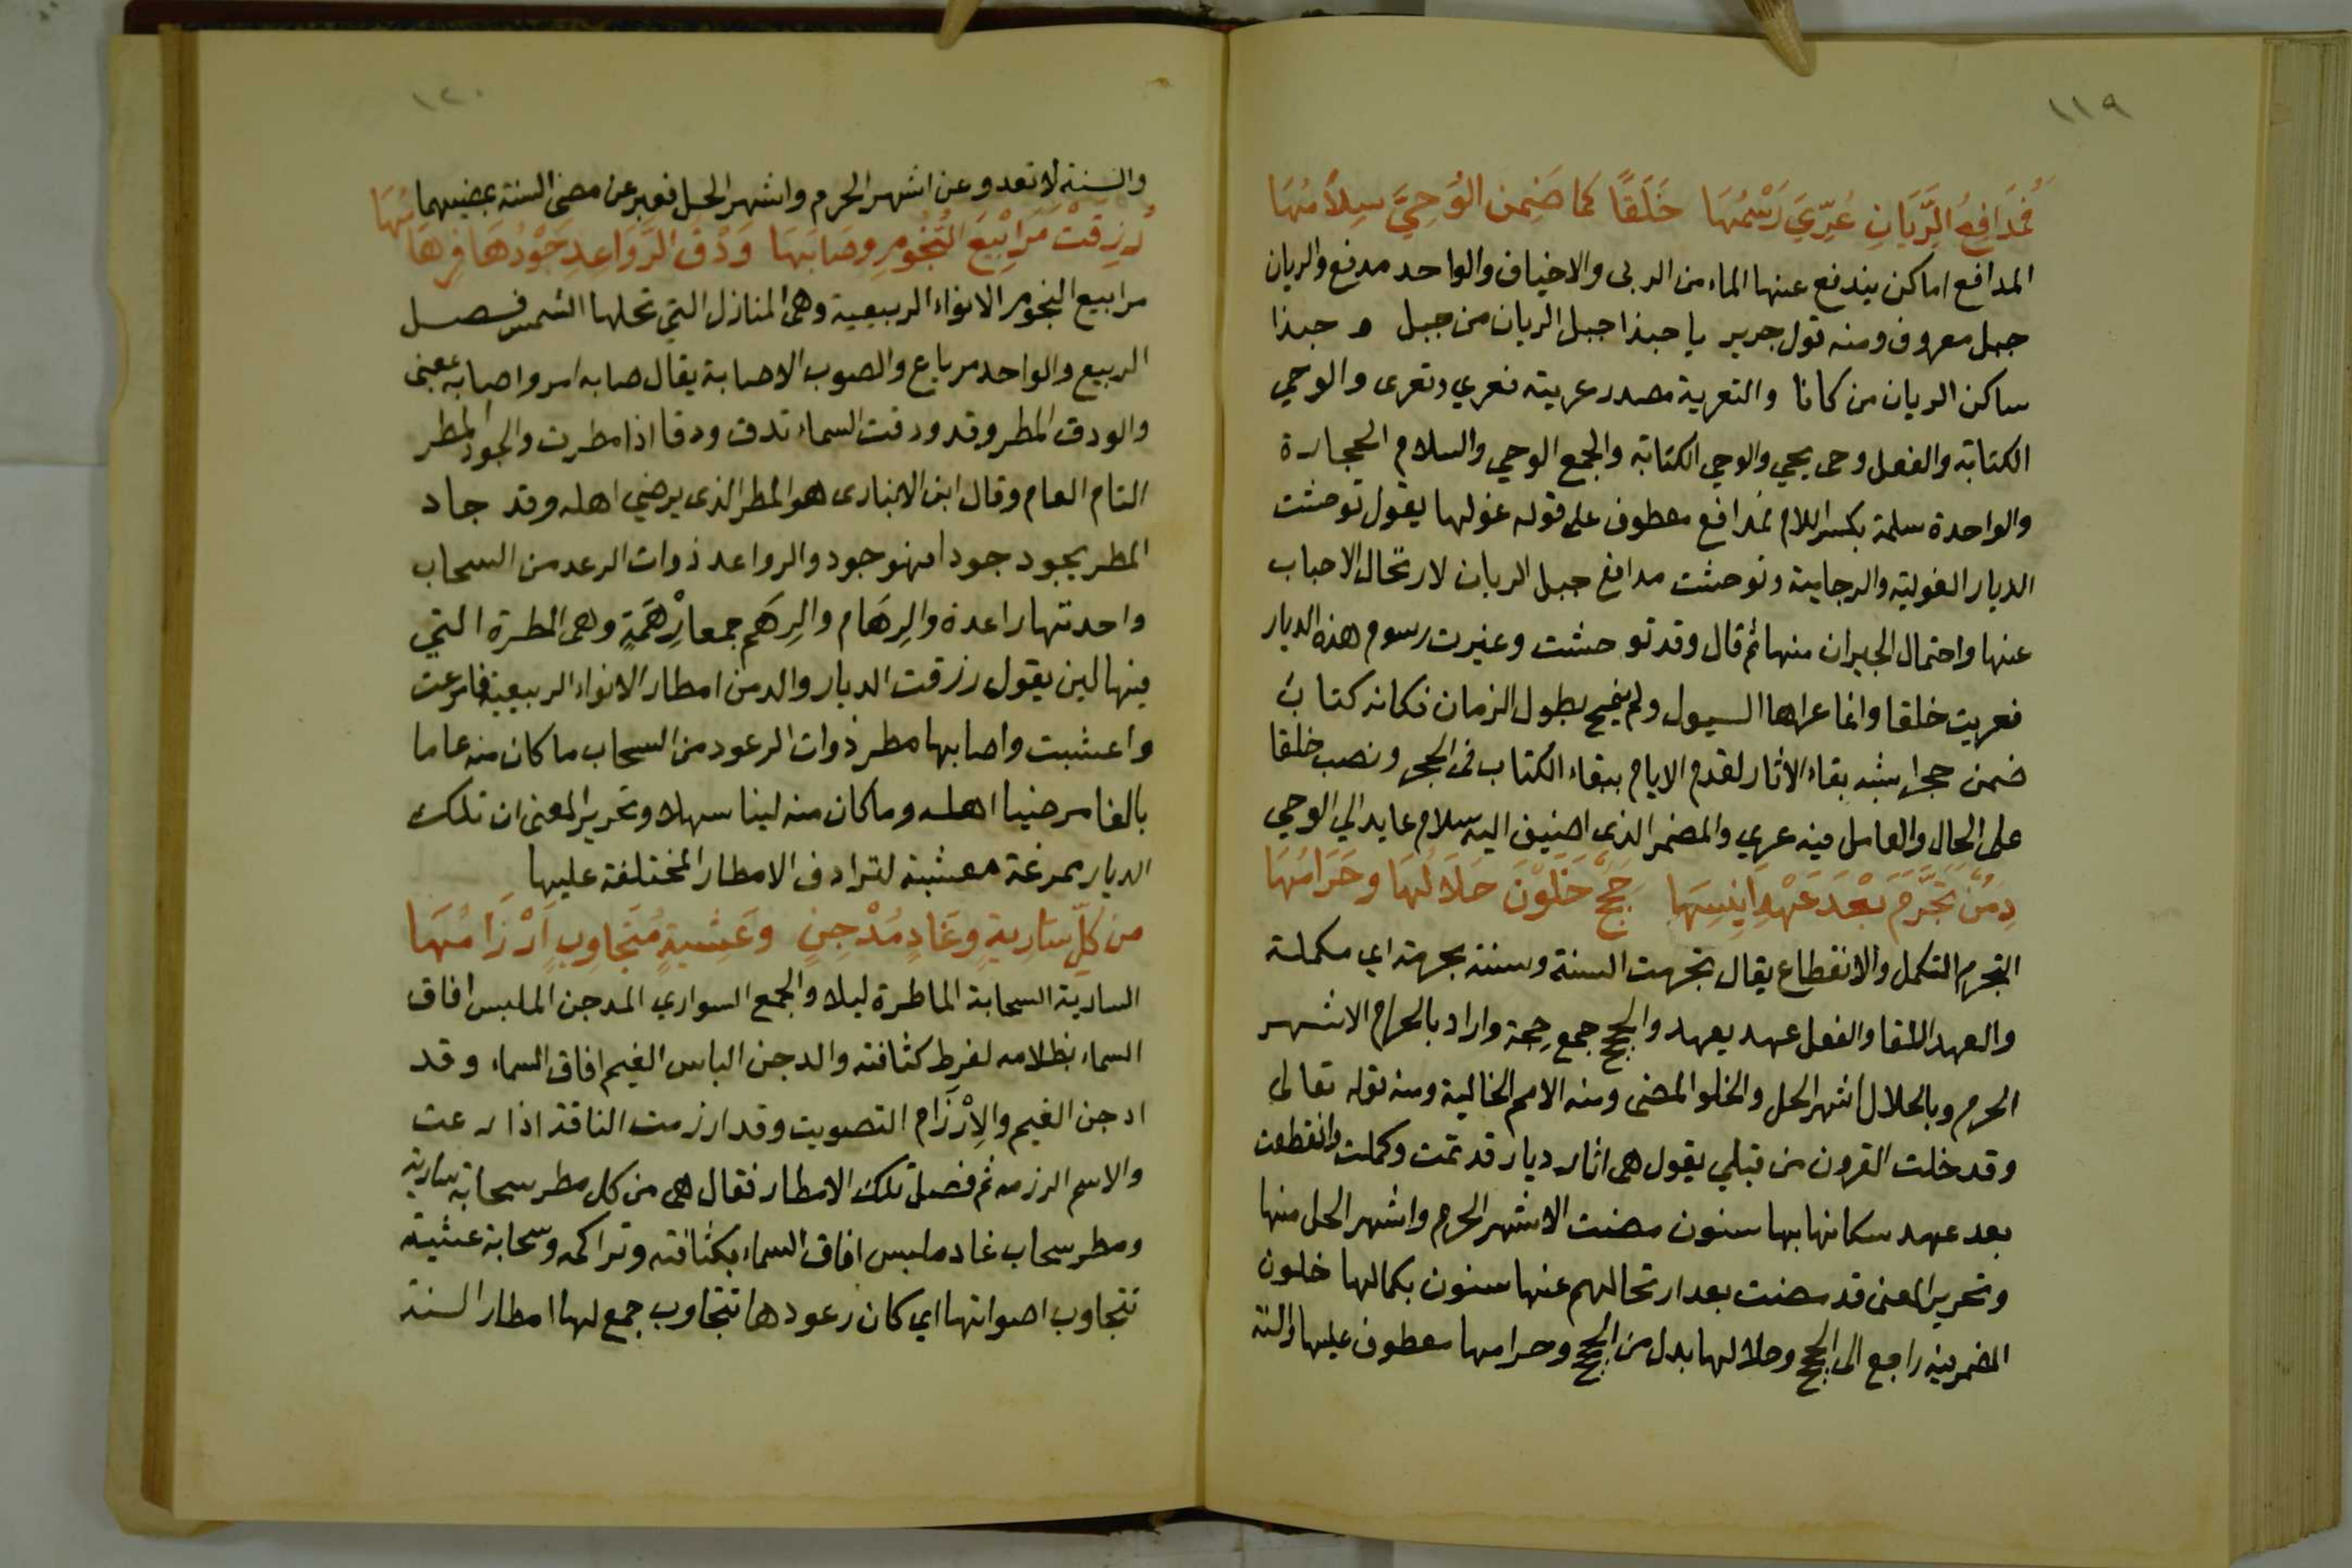 ١١٩
فمَدَافِعُ الرَّيَانِ عُرِّيَ رَسْمُهَا خَلَقًا كَمَا ضَمِنَ الوُحِيَّ سِلاَمُهَا
المدافع اماكن يندفع عنها الماء من الربى والاخياف والواحد مدفع والريان
جبل معروف ومنه قول جرير يا حبذا جبل الريان من جبل وحبذا
ساكن الريان من كانا والتعرية مصدر عريته فعري وتعرى والوحي
الكتابة والفعل وحى يحي والوحي الكتابة والجمع الوحي والسلام الحجارة
والواحدة سلمة بكسر اللام فمدافع معطوف على قوله غولها يقول توحشت
الديار الغولية والرجامية وتوحشت مدافع جبل الريان لارتحال الاحباب
عنها واحتمال الجيران منها ثم قال وقد توحشت وغيرت رسوم هذه الديار
فعريت خلقا وانما عراها السيول ولم ينمح بطول الزمان فكانه كتاب
ضمن حجرا شبه بقاء الاثار لقدم الايام ببقاء الكتاب فى الحجر ونصب خلقا
على الحال والعامل فيه عري والمضمر الذى اضيف اليه سلام عايد الي الوحي
دِمَنٌ تَجَرَّمَ بَعْدَ عَهْدِ اَنِيسِهَا حِجَجٌ خَلَوْنَ حَلاَلُهَا وحَرَامُهَا
التجرم التكمل والانقطاع يقال تجرمت السنة وسنة مجرمة اي مكملة
والعهد اللقا والفعل عهد يعهد والحجج جمع حِجة واراد بالحرام الاشهر
الحرم وبالحلال اشهر الحل والخلو المضى ومنه الامم الخالية ومنه قوله تعالى
وقد خلت القرون من قبلي يقول هى اثار ديار قد تمت وكملت وانقطعت
بعد عهد سكانها بها سنون مضت الاشهر الحرم واشهر الحل منها
وتحرير المعنى قد مضت بعد ارتحالهم عنها سنون بكمالها خلون
المضمر فيه راجع الى الحجج وحلالها بدل من الحجج وحرامها معطوف عليها والسنة
١٢٠
والسنة لا تعدو عن اشهر الحرم واشهر الحل فعبر عن مضى السنة بمضيهما
رُزِقَتْ مَرَابِيْعَ النُّجُومِ وصَابَهَا وَدْقُ الرَّوَاعِدِ جَوْدُهَا فرِهَامُهَا
مرابيع النجوم الانواء الربيعية وهى المنازل التي تحلها الشمس فصل
الربيع والواحد مرباع والصوب الاصابة يقال صابه امر واصابه بمعنى
والودق المطر وقد ودقت السماء تدق ودقا اذا مطرت والجود المطر
التام العام وقال ابن الانبارى هو المطر الذى يرضي اهله وقد جاد
المطر يجود جودا فهو جود والرواعد ذوات الرعد من السحاب
واحدتها راعدة والرِهَام والرِهَم جمعا رِهْمَةٍ وهى المطرة التي
فيها لين يقول رزقت الديار والدمن امطار الانواء الربيعية فامرعت
واعشبت واصابها مطر ذوات الرعود من السحاب ما كان منه عاما
بالغا مرضيا اهله وما كان منه لينا سهلا وتحرير المعنى ان تلك
الديار ممرغة معشبة لترادف الامطار المختلفة عليها
من كلِّ سَارِيةٍ وغَادٍ مُدْجِنٍ وعَشِيةٍ مُتَجَاوِبٍ اَرْزَامُهَا
السارية السحابة الماطرة ليلا والجمع السواري المدجن الملبس افاق
السماء بظلامه لفرط كثافته والدجن الباس الغيم افاق السماء وقد
ادجن الغيم والاِرْزَام التصويت وقد ارزمت الناقة اذا رعت
والاسم الرزمه ثم فصل تلك الامطار فقال هى من كل مطر سحابة سارية
ومطر سحاب غاد ملبس افاق السماء بكثافته وتراكمه وسحابة عشية
تتجاوب اصواتها اي كان رعودها تتجاوب جمع لها امطار السنة